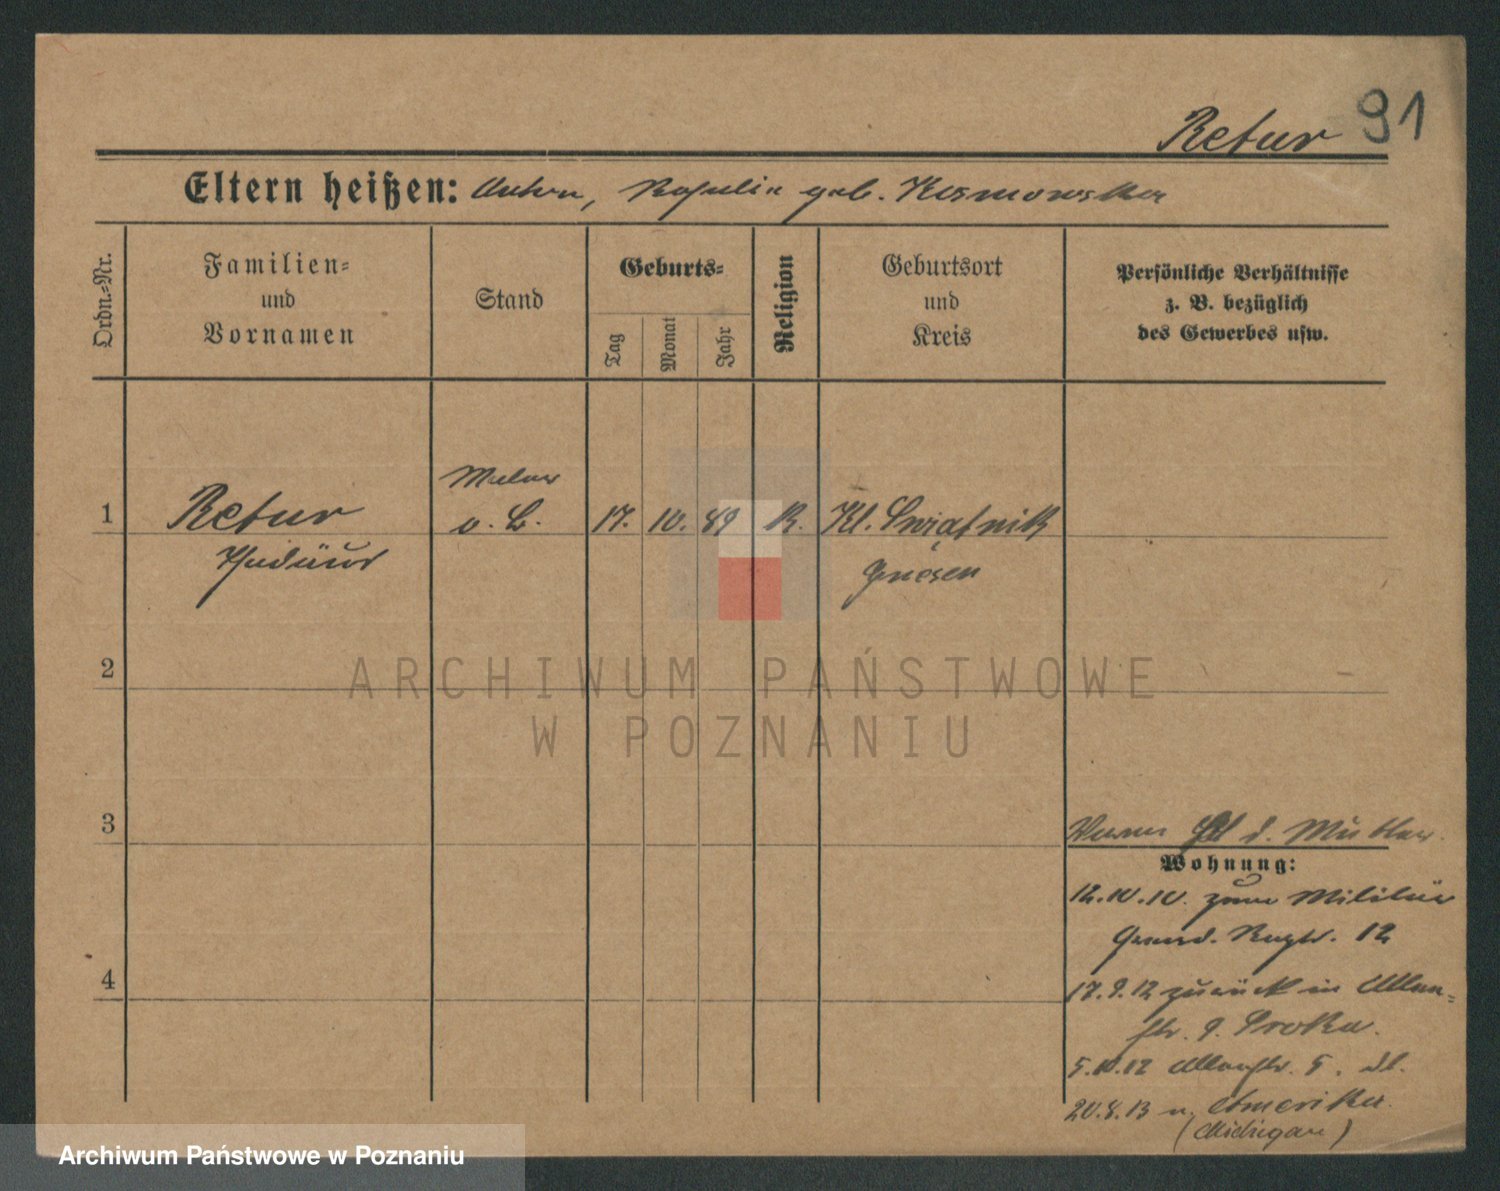 Retur 91
Eltern heißen: Anton, Rosalia geb. Kosmowska
Ordn.-Nr.
Familien-
und
Vornamen
Stand
Geburts-
Tag
Monat
Jahr
Religion
Geburtsort
und
Kreis
Persönliche Verhältnisse
z. B. bezüglich
des Gewerbes usw.
1
Retur
Maler
17. 10. 89 R. Kl. Swiątnik
Gnesen
2
3
4
d. Mutter.
Wohnung:
12.10.10. zum Militär
Grend. Regt. 12
17.9.12 zurück in Allen-
str. 9. Troka.
5.10.12 Allenstr. 5.
20.8.13 n. Amerika.
(Michigan)
ARCHIWUM PAŃSTWOWE
W POZNANIU
Archiwum Państwowe w Poznaniu